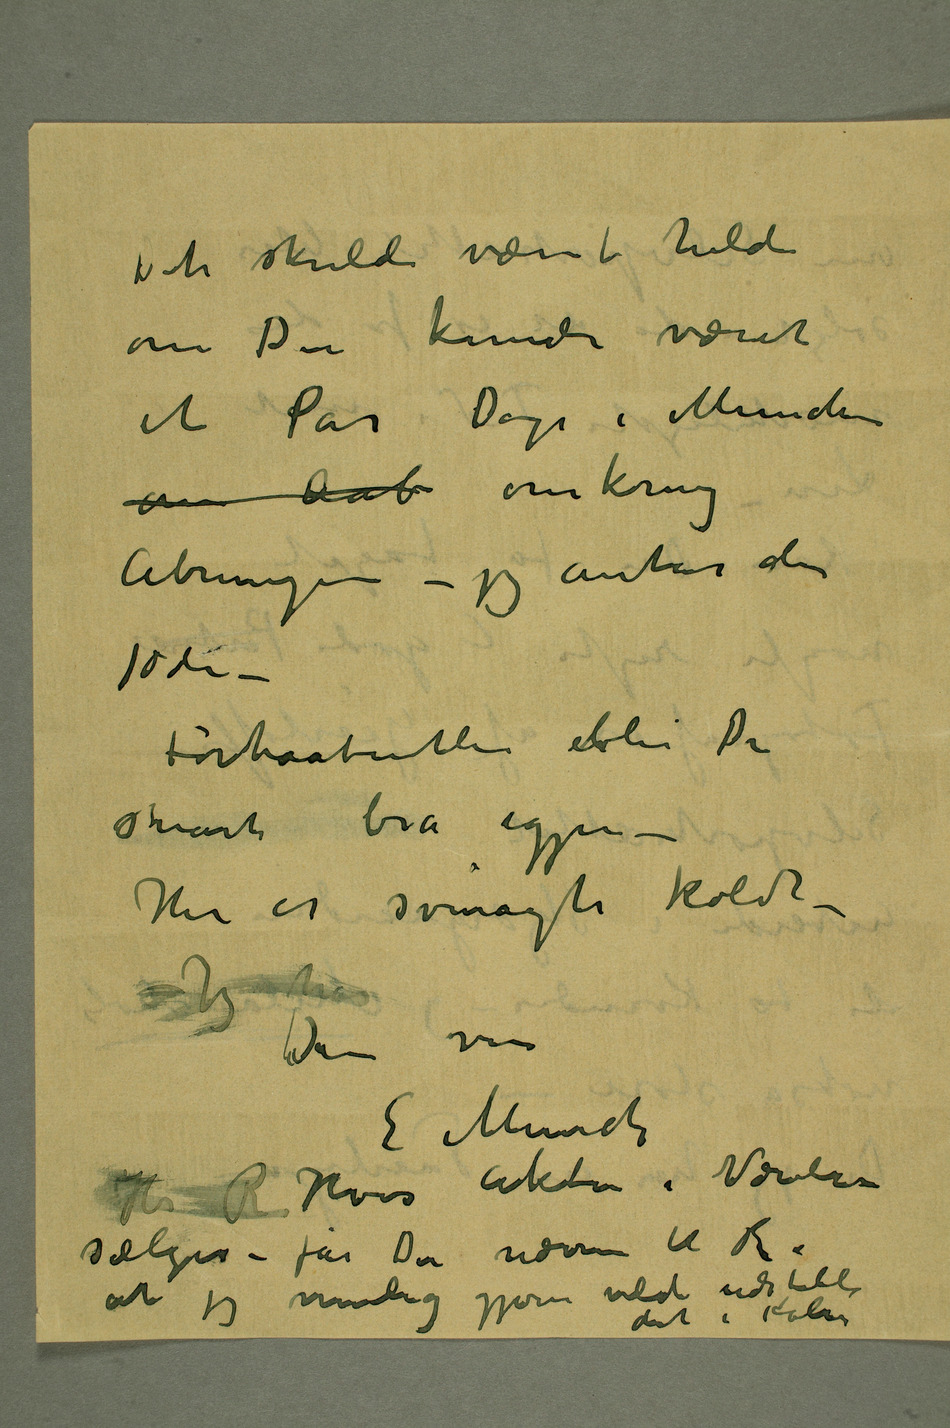 Det skulde været heldi
om De kunde været
et Par Dage i München
om Aab omkring
Åbningen – jeg antar den
10de –
Forhaabentlig blir De
snart bra igjen –
Her er svinagti koldt –
Jeg har
Din ven
E Munch
Hr R Hvis Akten i Værelse
sælges – får De nævne til R.
at jeg nemlig gjerne vilde udstille
det i Køln